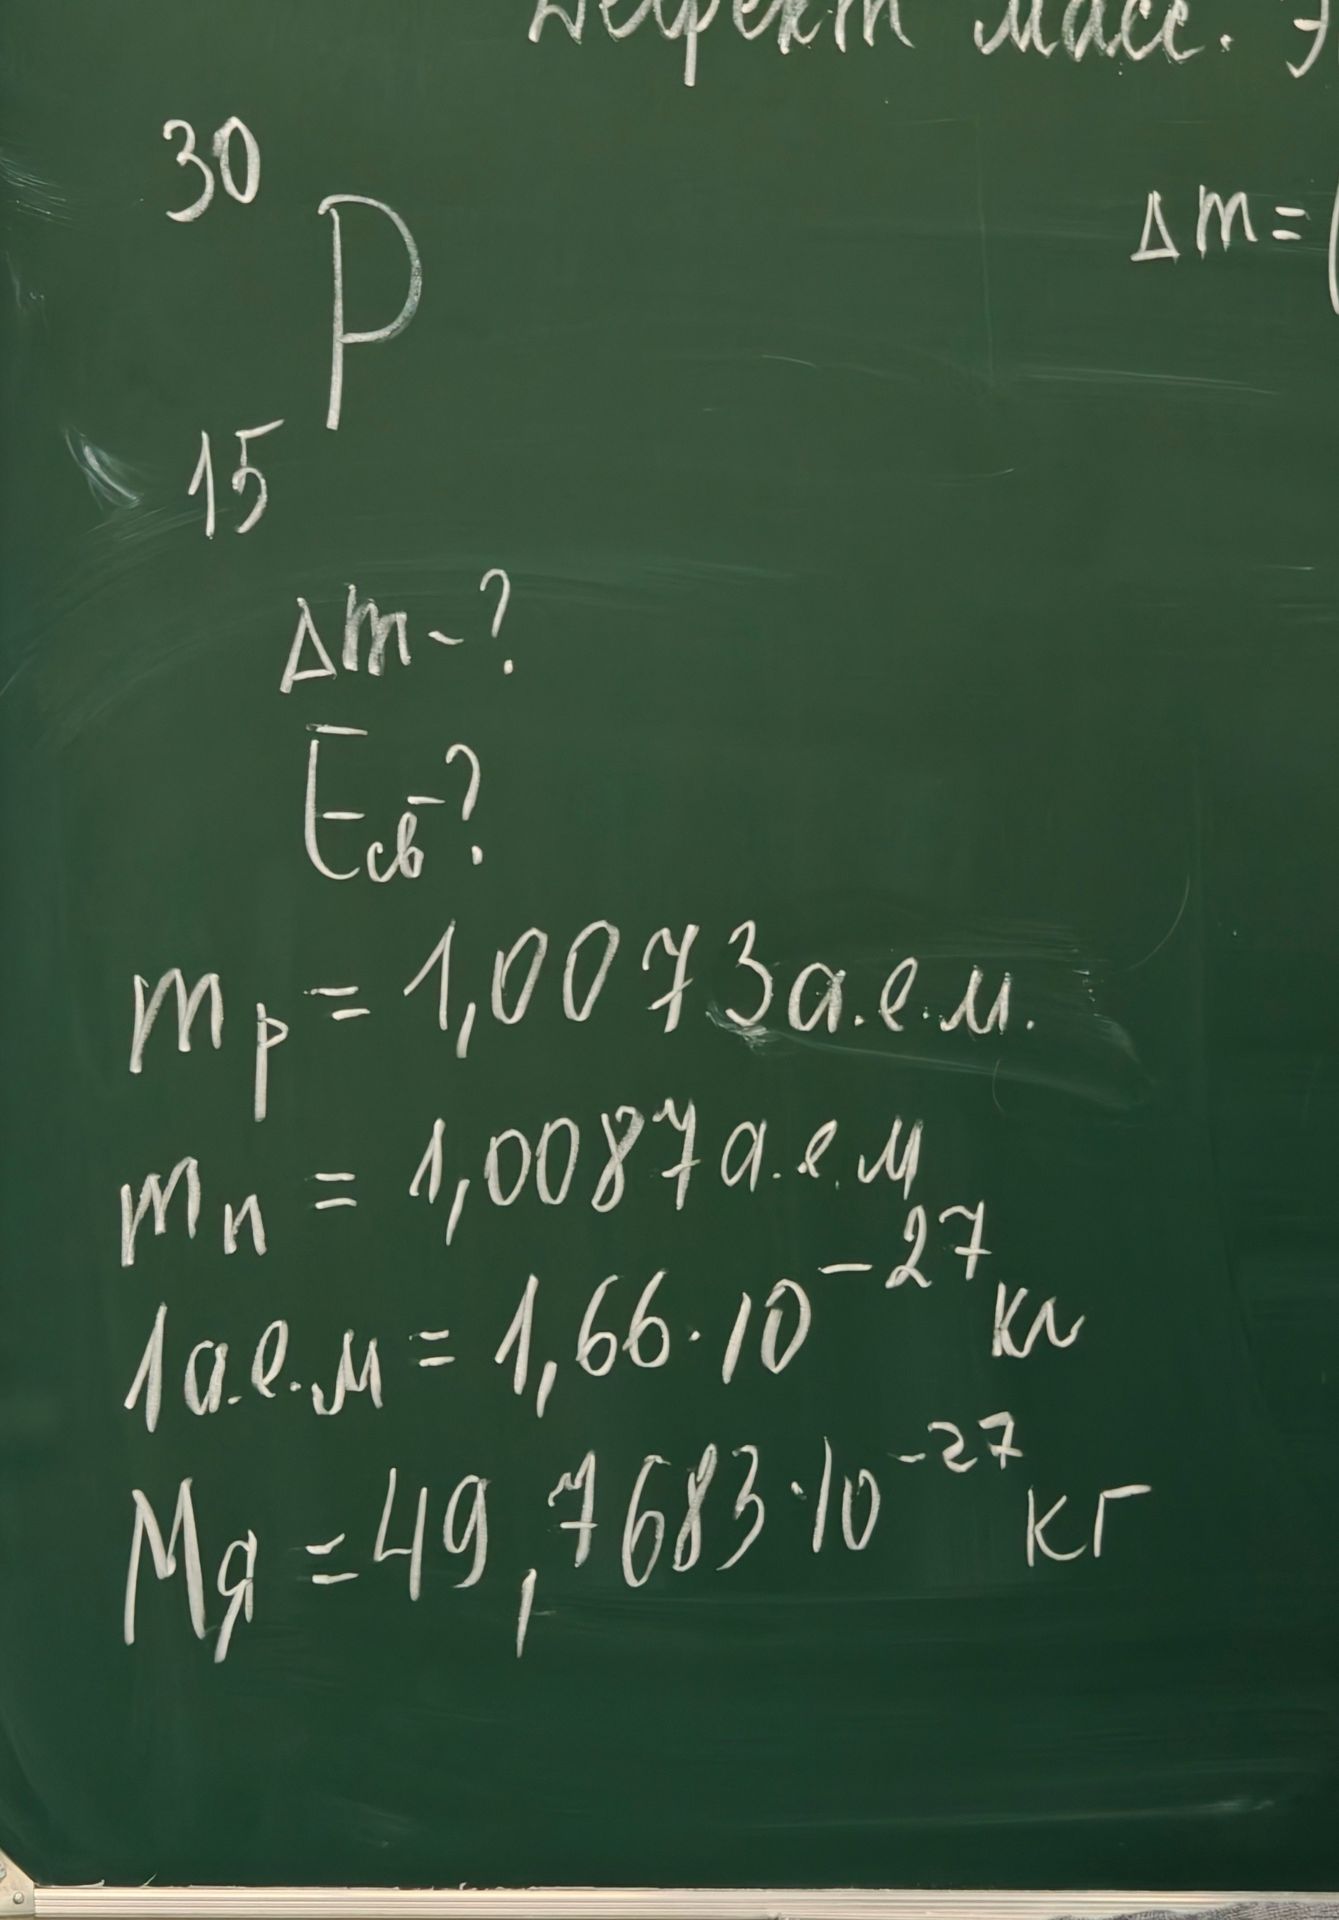 Дефект масс. Э
30
P
Δm=(
15
Δm-?
Eсв-?
mp = 1,0073 а.е.м.
mn = 1,0087 а.е.м
1а.е.м = 1,66·10⁻²⁷ кг
Mя = 49,7683·10⁻²⁷ кг